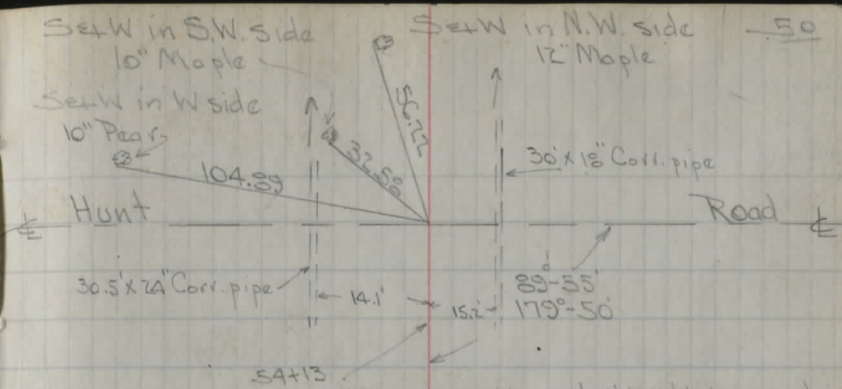 S&W in S.W. side
10" Maple
S&W in N.W. side
12" Maple
50
S&W in W side
10" Pear
104.89
32.58
56.22
30' x 18" Corr. pipe
Hunt
Road
℄
℄
30.5' x 24" Corr. pipe
14.1'
15.2'
89°-55'
179°-50'
54+13